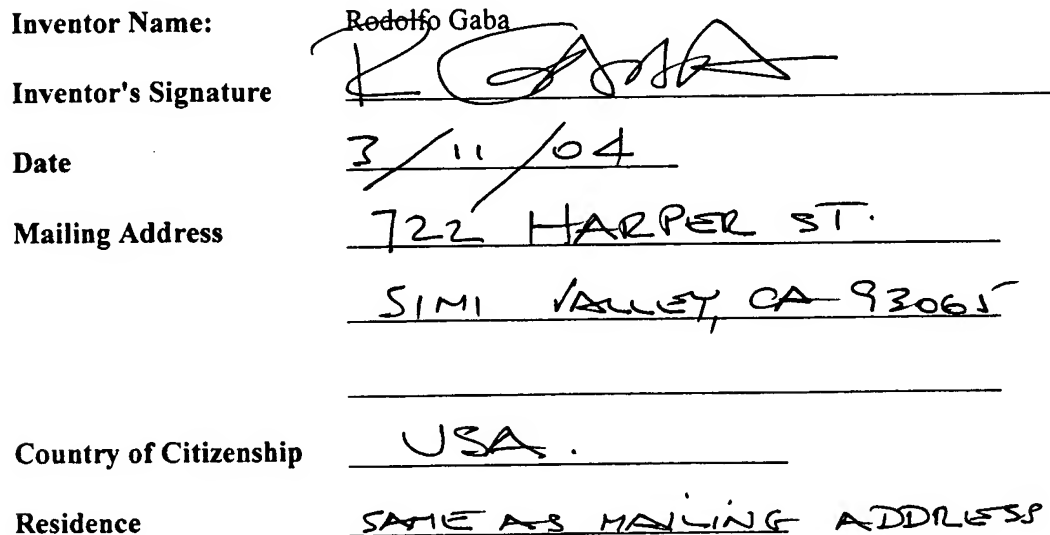 Inventor Name: Rodolfo Gaba
Inventor's Signature
Date 3/11/04
Mailing Address 722 HARPER ST.
SIMI VALLEY, CA 93065
Country of Citizenship USA.
Residence SAME AS MAILING ADDRESS